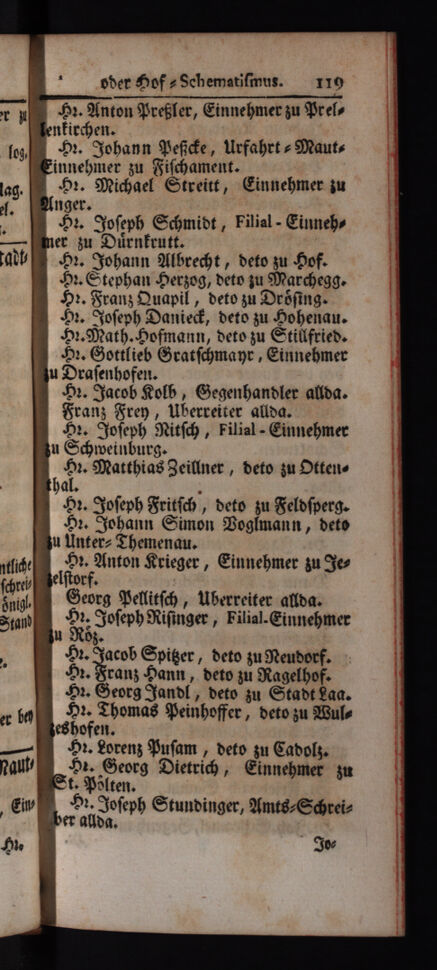 oder Hof-Schematismus. 119
Hr. Anton Preßler, Einnehmer zu Prel-
lenkirchen.
Hr. Johann Peßcke, Urfahrt-Maut-
Einnehmer zu Fischament.
Hr. Michael Streitt, Einnehmer zu
Anger.
Hr. Joseph Schmidt, Filial-Einneh-
mer zu Dürnkrutt.
Hr. Johann Albrecht, deto zu Hof.
Hr. Stephan Herzog, deto zu Marchegg.
Hr. Franz Quapil, deto zu Drösing.
Hr. Joseph Danieck, deto zu Hohenau.
Hr. Math. Hofmann, deto zu Stillfried.
Hr. Gottlieb Gratschmayr, Einnehmer
zu Drasenhofen.
Hr. Jacob Kolb, Gegenhandler allda.
Franz Frey, Uberreiter allda.
Hr. Joseph Nitsch, Filial-Einnehmer
zu Schweinburg.
Hr. Matthias Zeillner, deto zu Otten-
thal.
Hr. Joseph Fritsch, deto zu Feldsperg.
Hr. Johann Simon Voglmann, deto
zu Unter-Themenau.
Hr. Anton Krieger, Einnehmer zu Je-
zelstorf.
Georg Pellitsch, Uberreiter allda.
Hr. Joseph Risinger, Filial-Einnehmer
zu Röz.
Hr. Jacob Spitzer, deto zu Neudorf.
Hr. Franz Hann, deto zu Ragelhof.
Hr. Georg Jandl, deto zu Stadt Laa.
Hr. Thomas Peinhoffer, deto zu Wul-
zeshofen.
Hr. Lorenz Pusam, deto zu Cadolz.
Hr. Georg Dietrich, Einnehmer zu
St. Pölten.
Hr. Joseph Stundinger, Amts-Schrei-
ber allda.
Jo-